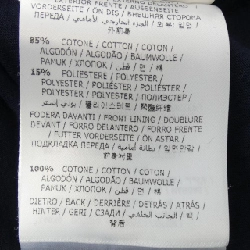 VORDERSEITE / ÖN DIŞ / ВНЕШНЯЯ СТОРОНА
ПЕРЕДА /
外前幕
85% COTONE / COTTON / COTON /
ALGODÓN / ALGODÃO / BAUMWOLLE /
PAMUK / ХЛОПОК / قطن / 면 / 棉
15% POLIESTERE / POLYESTER /
POLYESTER / POLIÉSTER / POLIÉSTER /
POLYESTER / POLYESTER / ПОЛИЭСТЕР /
FODERA DAVANTI / FRONT LINING / DOUBLURE
DEVANT / FORRO DELANTERO / FORRO FRENTE
/ FUTTER VORDERSEITE / ÖN ASTAR /
ПОДКЛАДКА ПЕРЕДА /
100% COTONE / COTTON / COTON /
ALGODÓN / ALGODÃO / BAUMWOLLE /
PAMUK / ХЛОПОК / قطن / 면 / 棉
DIETRO / BACK / DERRIÈRE / DETRÁS / ATRÁS /
HINTER / GERİ / СЗАДИ /